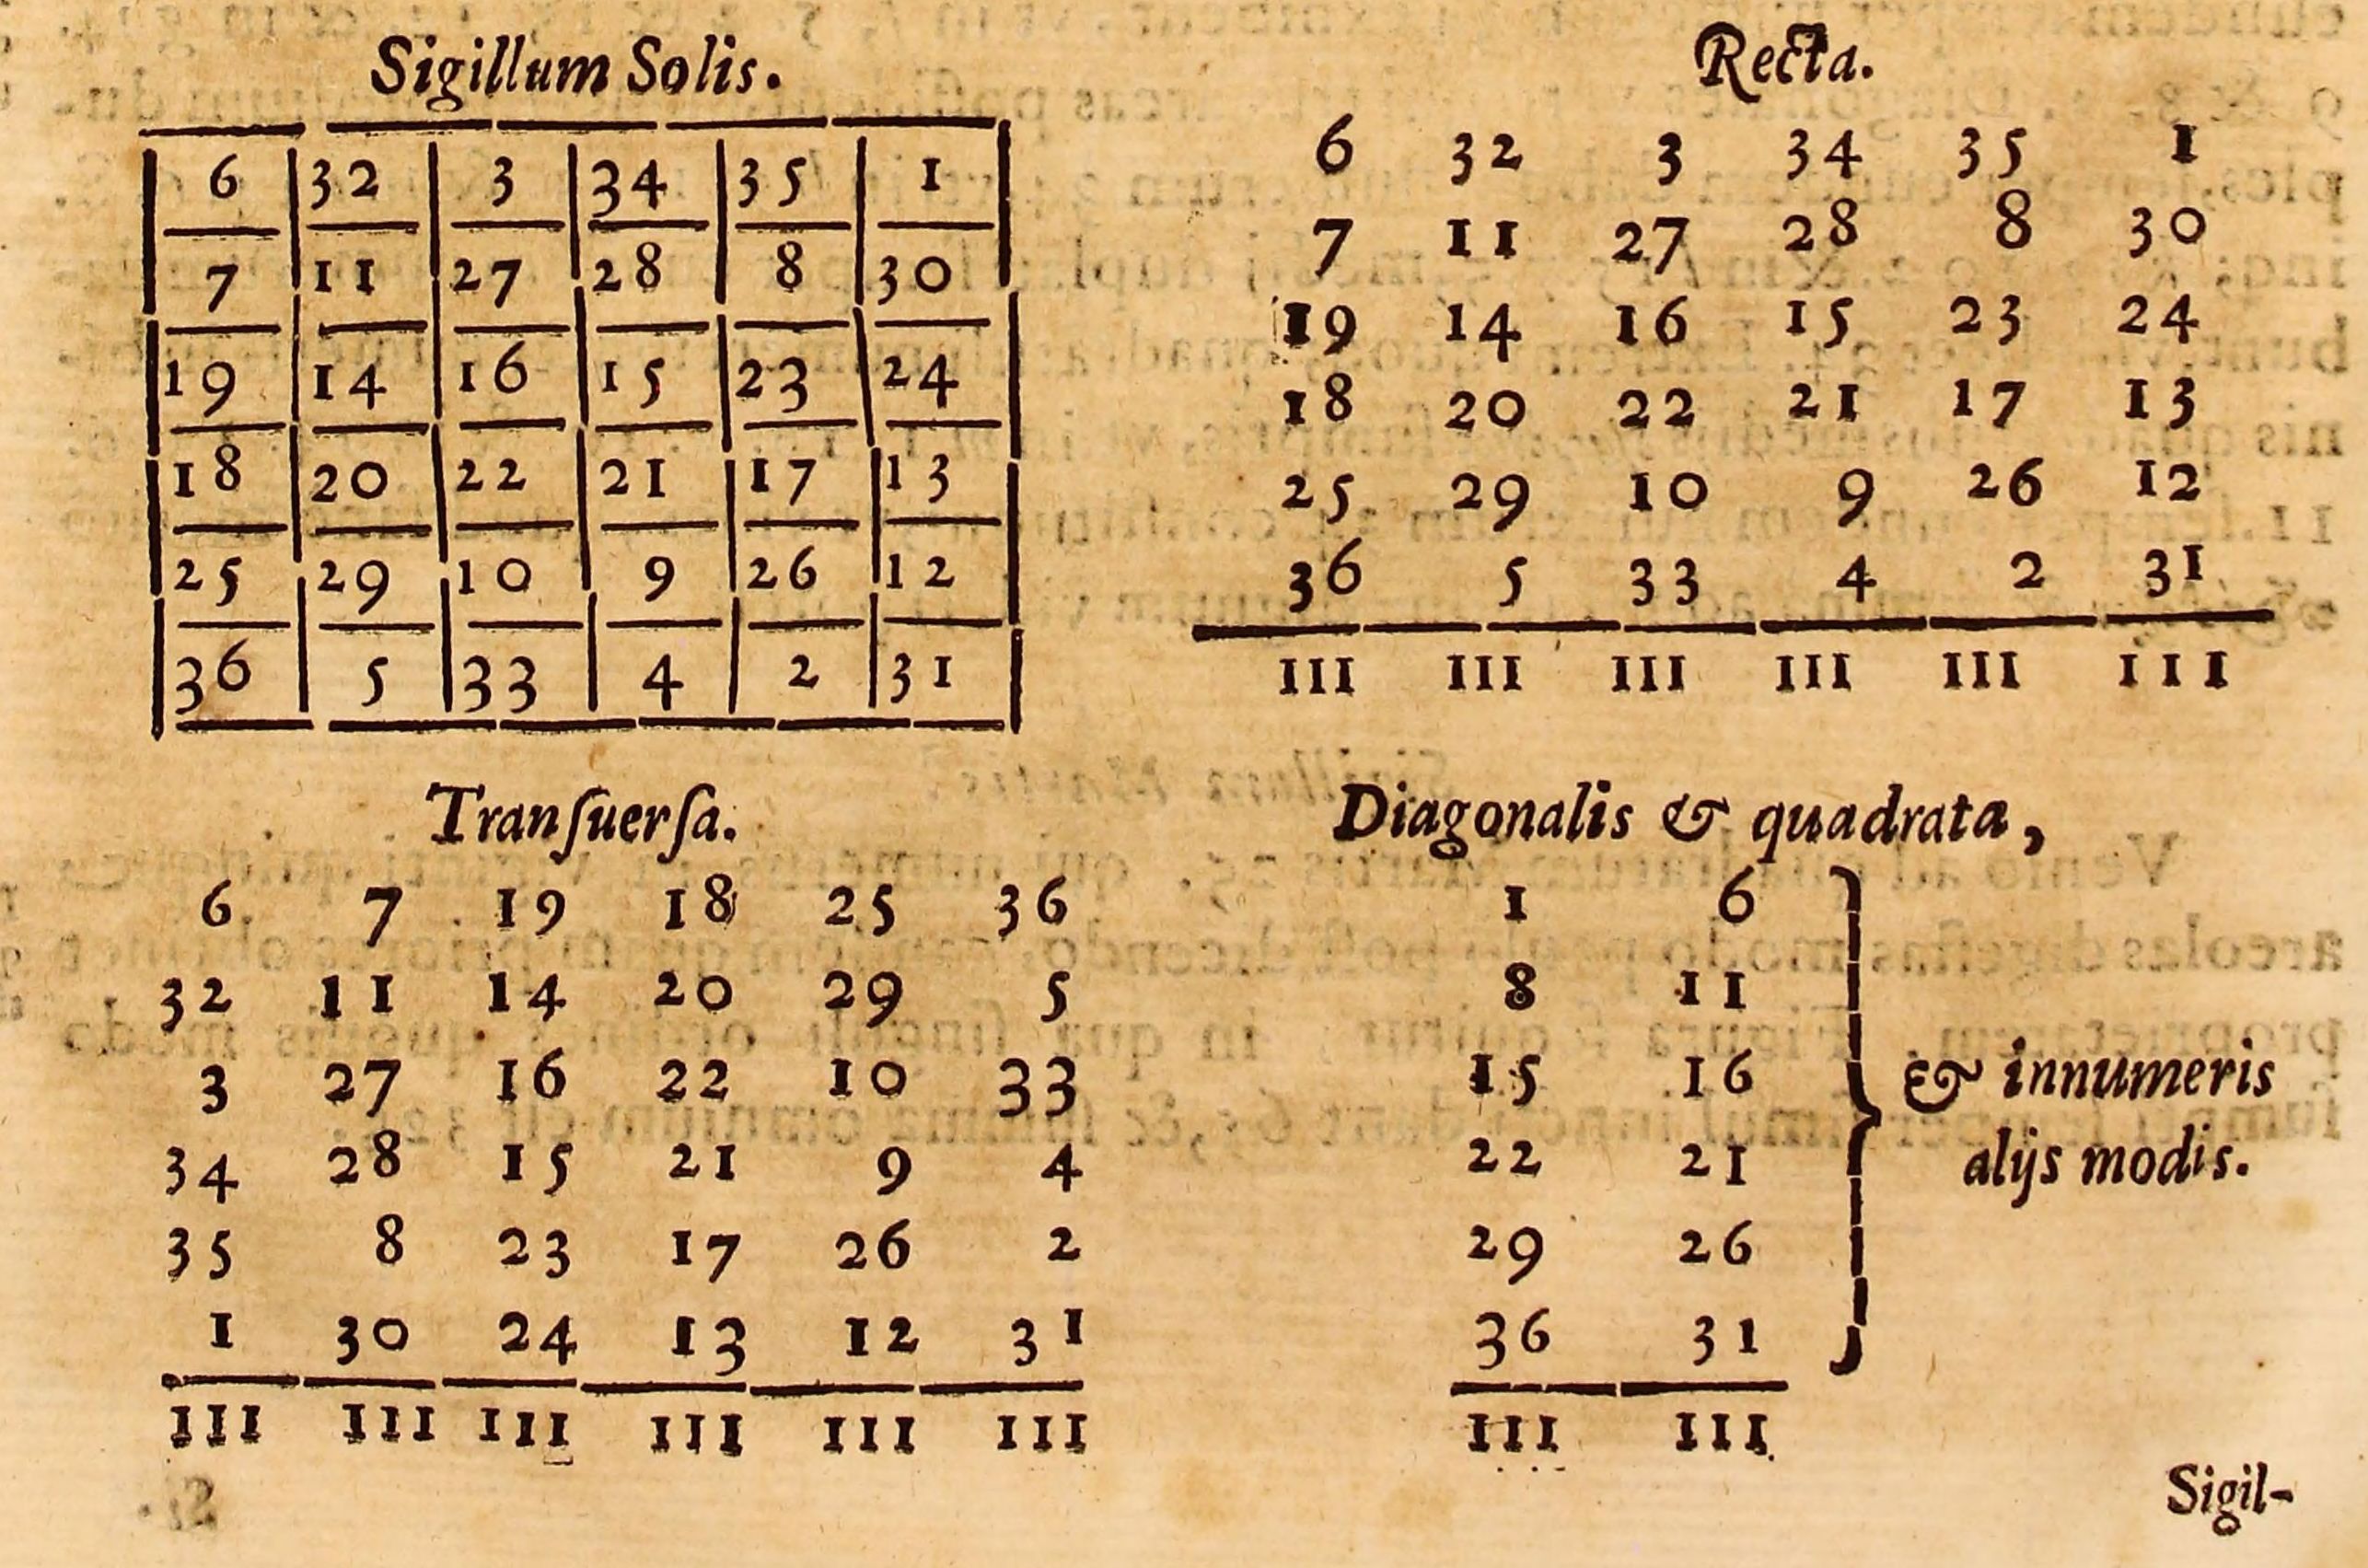 Sigillum Solis.
6 32 3 34 35 1
7 11 27 28 8 30
19 14 16 15 23 24
18 20 22 21 17 13
25 29 10 9 26 12
36 5 33 4 2 31
Recta.
6 32 3 34 35 1
7 11 27 28 8 30
19 14 16 15 23 24
18 20 22 21 17 13
25 29 10 9 26 12
36 5 33 4 2 31
111 111 111 111 111 111
Tranſuerſa.
6 7 19 18 25 36
32 11 14 20 29 5
3 27 16 22 10 33
34 28 15 21 9 4
35 8 23 17 26 2
1 30 24 13 12 31
111 111 111 111 111 111
Diagonalis & quadrata,
1 6
8 11
15 16
22 21
29 26
36 31
111 111
& innumeris
alijs modis.
Sigil-